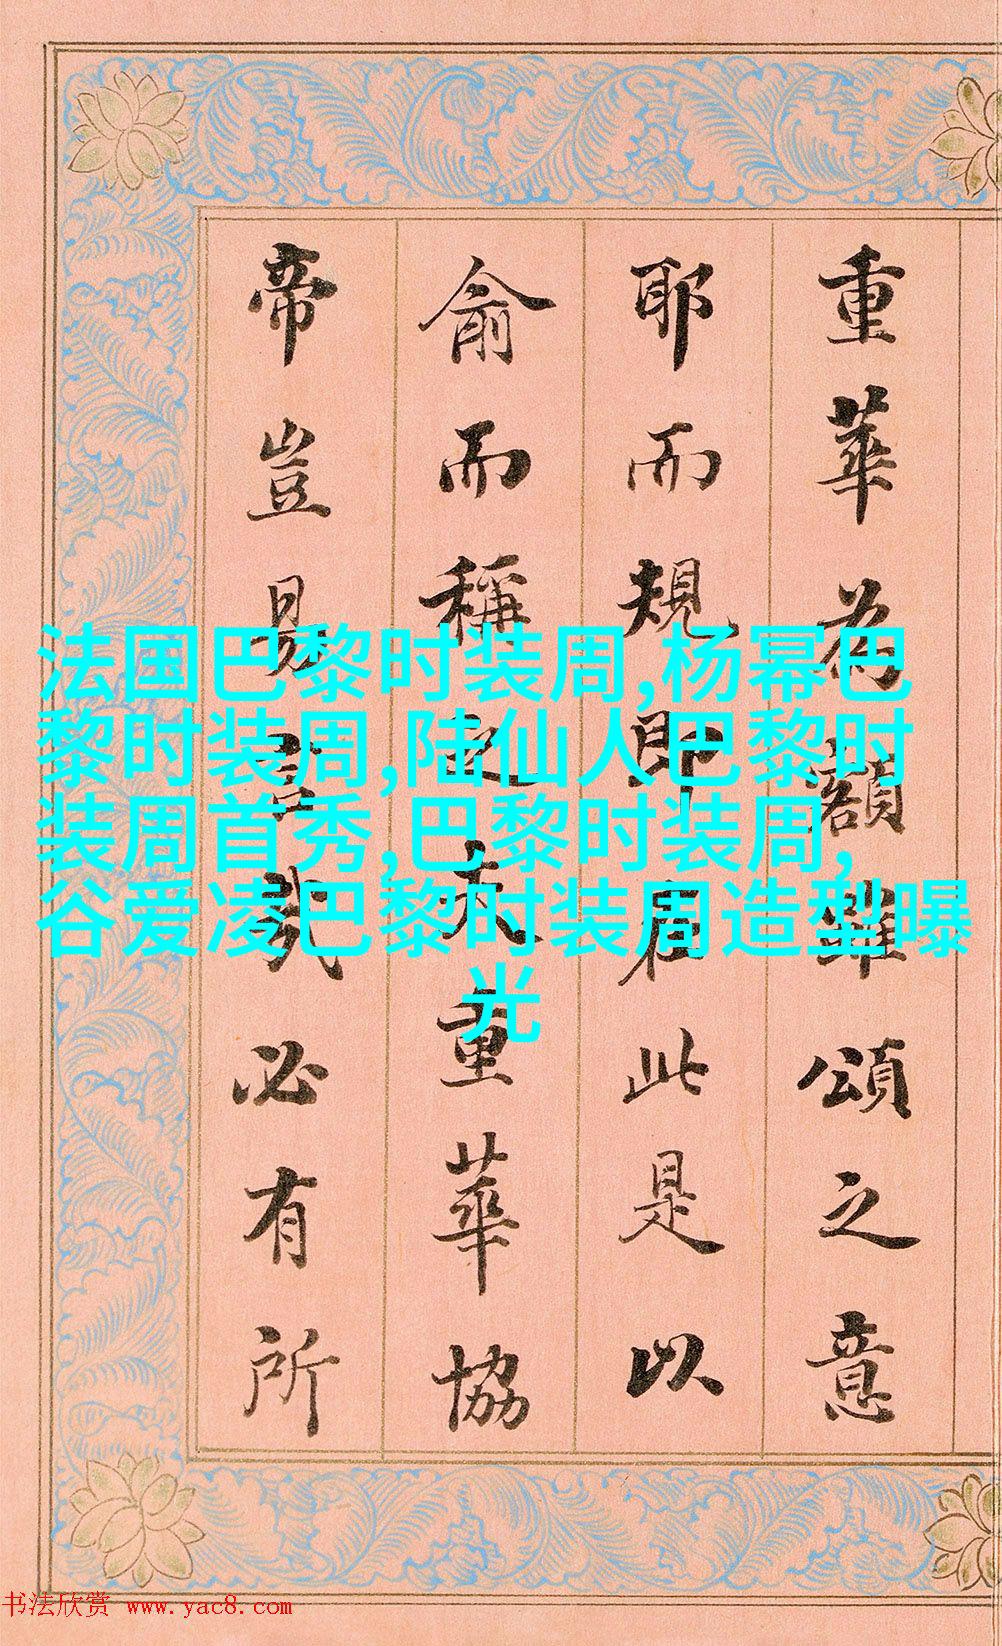 重華為額雖頌之意
耶而規即在此是以
俞而稱之夫重華協
帝豈易言哉必有所
法国巴黎时装周,杨幂巴
黎时装周,陆仙人巴黎时
装周首秀,巴黎时装周,
谷爱凌巴黎时装周造型曝
光
书法欣赏 www.yac8.com